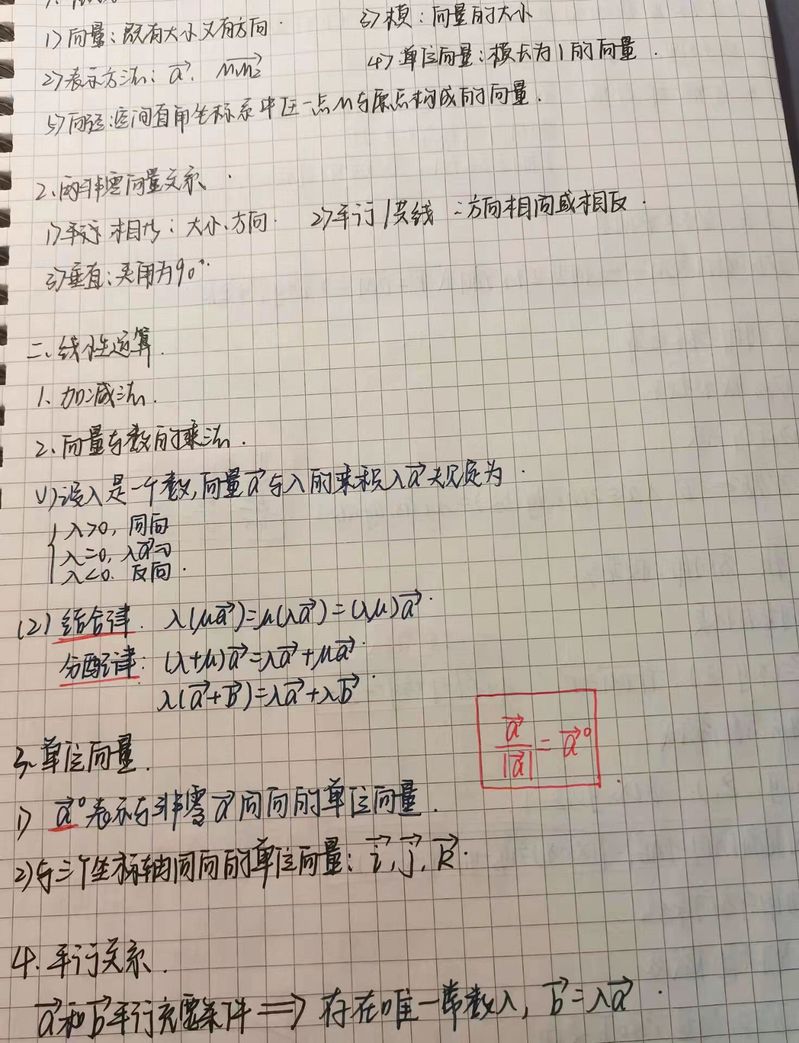 1) 向量：既有大小又有方向. 3) 模：向量的大小
2) 表示方法：a⃗. M₁M₂⃗ 4) 单位向量：模长为1的向量.
5) 向径：空间直角坐标系中任一点M与原点构成的向量.
2. 两非零向量关系.
1) 相等：大小、方向. 2) 平行/共线：方向相同或相反.
3) 垂直：夹角为90°.
二、线性运算.
1. 加减法.
2. 向量与数的乘法.
(1) 设λ是一个数, 向量a⃗与λ的乘积λa⃗规定为.
λ>0, 同向
λ=0, λa⃗=0
λ<0. 反向.
(2) 结合律. λ(μa⃗)=μ(λa⃗)=(λμ)a⃗.
分配律: (λ+μ)a⃗=λa⃗+μa⃗.
λ(a⃗+b⃗)=λa⃗+λb⃗.
a⃗/|a⃗| = a⃗°
3. 单位向量.
1) a⃗°表示与非零a⃗同向的单位向量.
2) 与三个坐标轴同向的单位向量: i⃗, j⃗, k⃗.
4. 平行关系.
a⃗和b⃗平行充要条件 ⟹ 存在唯一常数λ, b⃗=λa⃗.